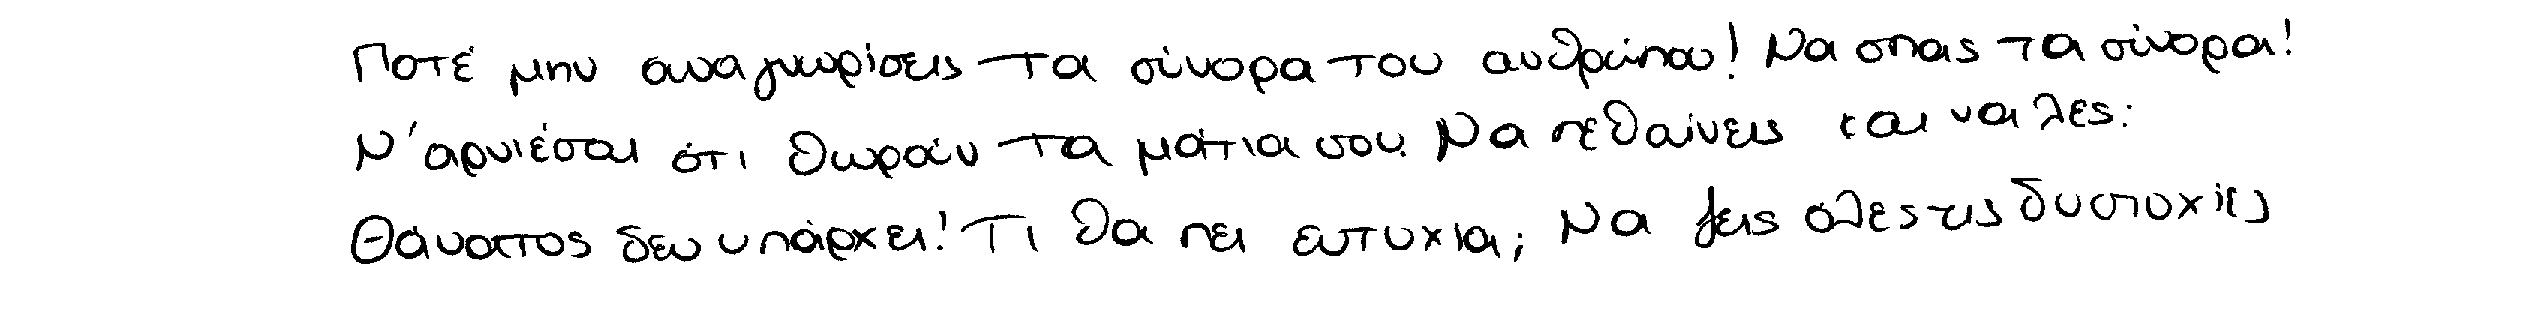 Ποτέ μην αναγνωρίσεις τα σύνορα του ανθρώπου! Να σπας τα σύνορα!
Ν' αρνιέσαι ότι θωράν τα μάτια σου. Να πεθαίνεις και να λες:
Θάνατος δεν υπάρχει! Τι θα πει ευτυχία; Να ζεις όλες τις δυστυχίες